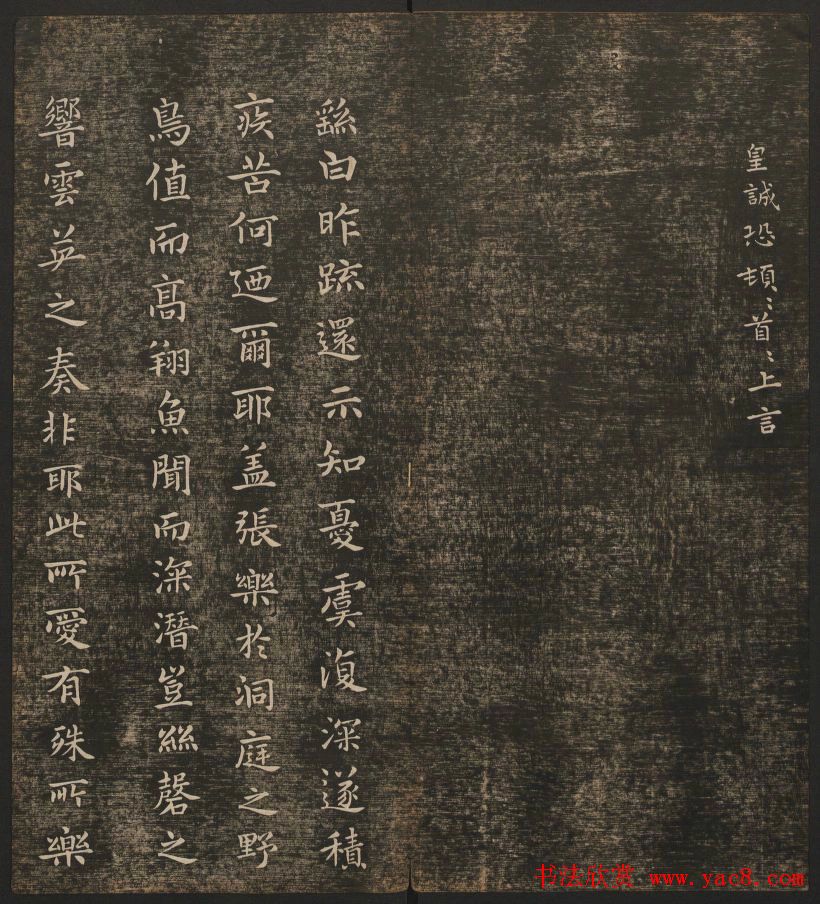 皇誠恐頓〻首〻上言
繇白昨疏還示知憂虞復深遂積
疾苦何迺爾耶盖張樂於洞庭之野
鳥值而高翔魚聞而深潛豈絲磬之
響雲英之奏非耶此所愛有殊所樂
书法欣赏 www.yac8.com